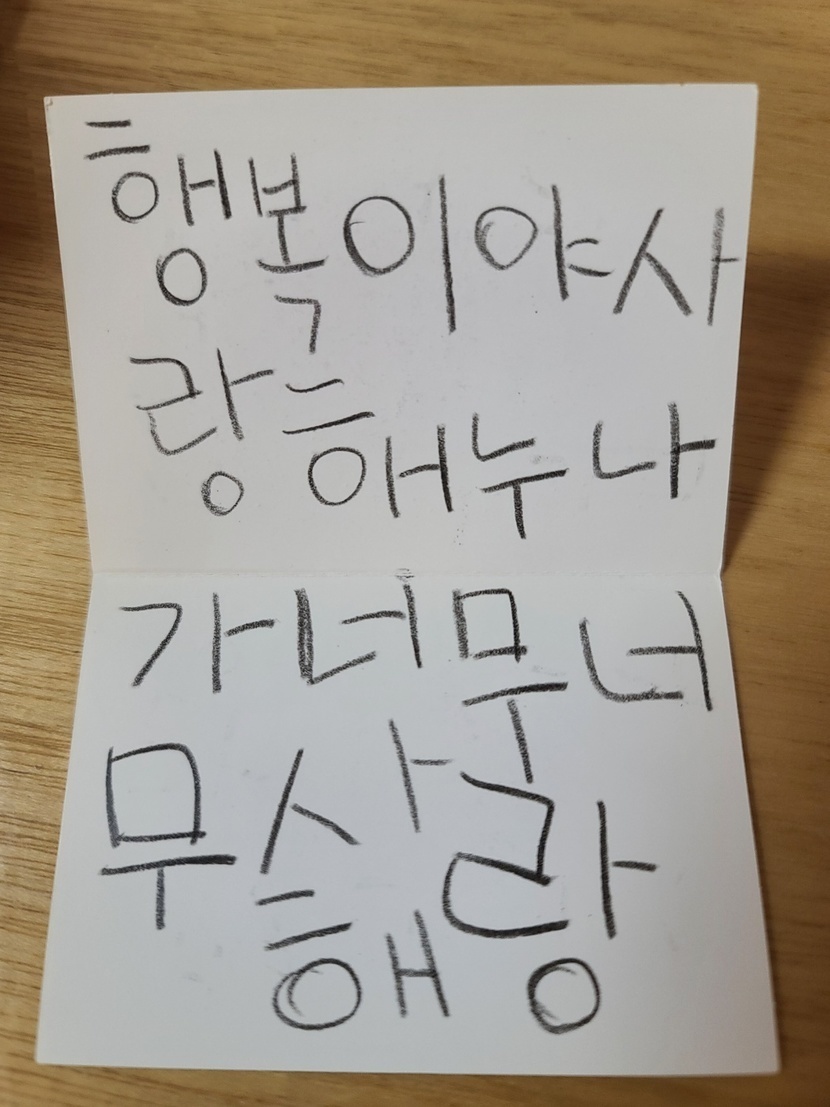 행복이야사
랑해누나
가너무너
무사랑
해